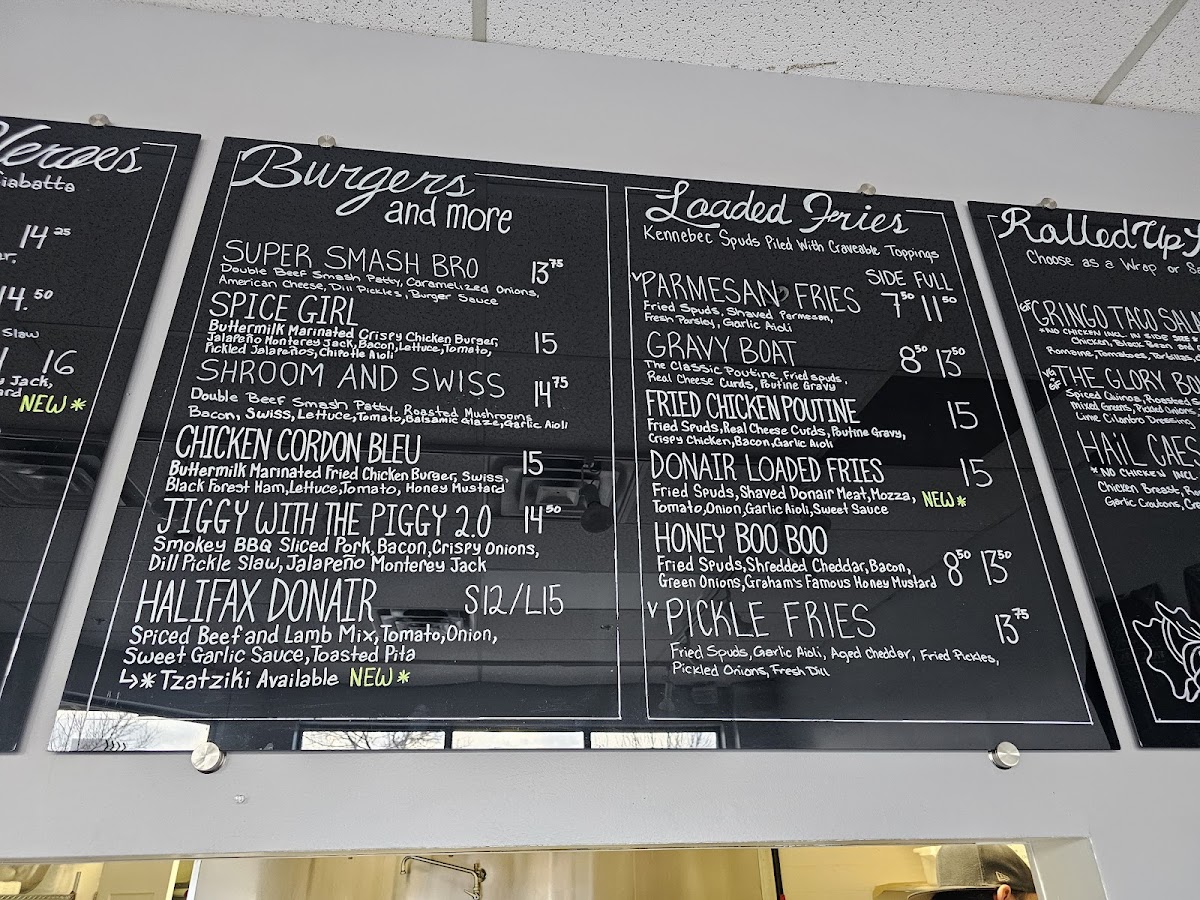 Heroes
Ciabatta
14 25
14.50
Slaw
16
Jack,
NEW*
Burgers
and more
SUPER SMASH BRO 13 75
Double Beef Smash Patty, Caramelized Onions,
American Cheese, Dill Pickles, Burger Sauce
SPICE GIRL
Buttermilk Marinated Crispy Chicken Burger, 15
Jalapeño Monterey Jack, Bacon, Lettuce, Tomato,
Pickled Jalapeños, Chipotle Aioli
SHROOM AND SWISS 14 75
Double Beef Smash Patty, Roasted Mushrooms
Bacon, Swiss, Lettuce, Tomato, Balsamic Glaze, Garlic Aioli
CHICKEN CORDON BLEU 15
Buttermilk Marinated Fried Chicken Burger, Swiss,
Black Forest Ham, Lettuce, Tomato, Honey Mustard
JIGGY WITH THE PIGGY 2.0 14 50
Smokey BBQ Sliced Pork, Bacon, Crispy Onions,
Dill Pickle Slaw, Jalapeño Monterey Jack
HALIFAX DONAIR S12/L15
Spiced Beef and Lamb Mix, Tomato, Onion,
Sweet Garlic Sauce, Toasted Pita
↳* Tzatziki Available NEW*
Loaded Fries
Kennebec Spuds Piled With Craveable Toppings
SIDE FULL
V PARMESAN FRIES 7 50 11 50
Fried Spuds, Shaved Parmesan,
Fresh Parsley, Garlic Aioli
GRAVY BOAT 8 50 13 50
The Classic Poutine, Fried spuds,
Real Cheese Curds, Poutine Gravy
FRIED CHICKEN POUTINE 15
Fried Spuds, Real Cheese Curds, Poutine Gravy,
Crispy Chicken, Bacon, Garlic Aioli
DONAIR LOADED FRIES 15
Fried Spuds, Shaved Donair Meat, Mozza, NEW*
Tomato, Onion, Garlic Aioli, Sweet Sauce
HONEY BOO BOO
Fried Spuds, Shredded Cheddar, Bacon, 8 50 13 50
Green Onions, Graham's Famous Honey Mustard
V PICKLE FRIES 13 75
Fried Spuds, Garlic Aioli, Aged Cheddar, Fried Pickles,
Pickled Onions, Fresh Dill
Rolled Up
Choose as a Wrap or
GF GRINGO TACO
*NO CHICKEN INCL. IN SIDE SIZE
Chicken, Black Bean and
Romaine, Tomatoes, Tortillas,
VG GF THE GLORY
Spiced Quinoa, Roasted
Mixed Greens, Pickled Onions
Lime Cilantro Dressing
HAIL
*NO CHICKEN INCL
Chicken Breast,
Garlic Croutons,